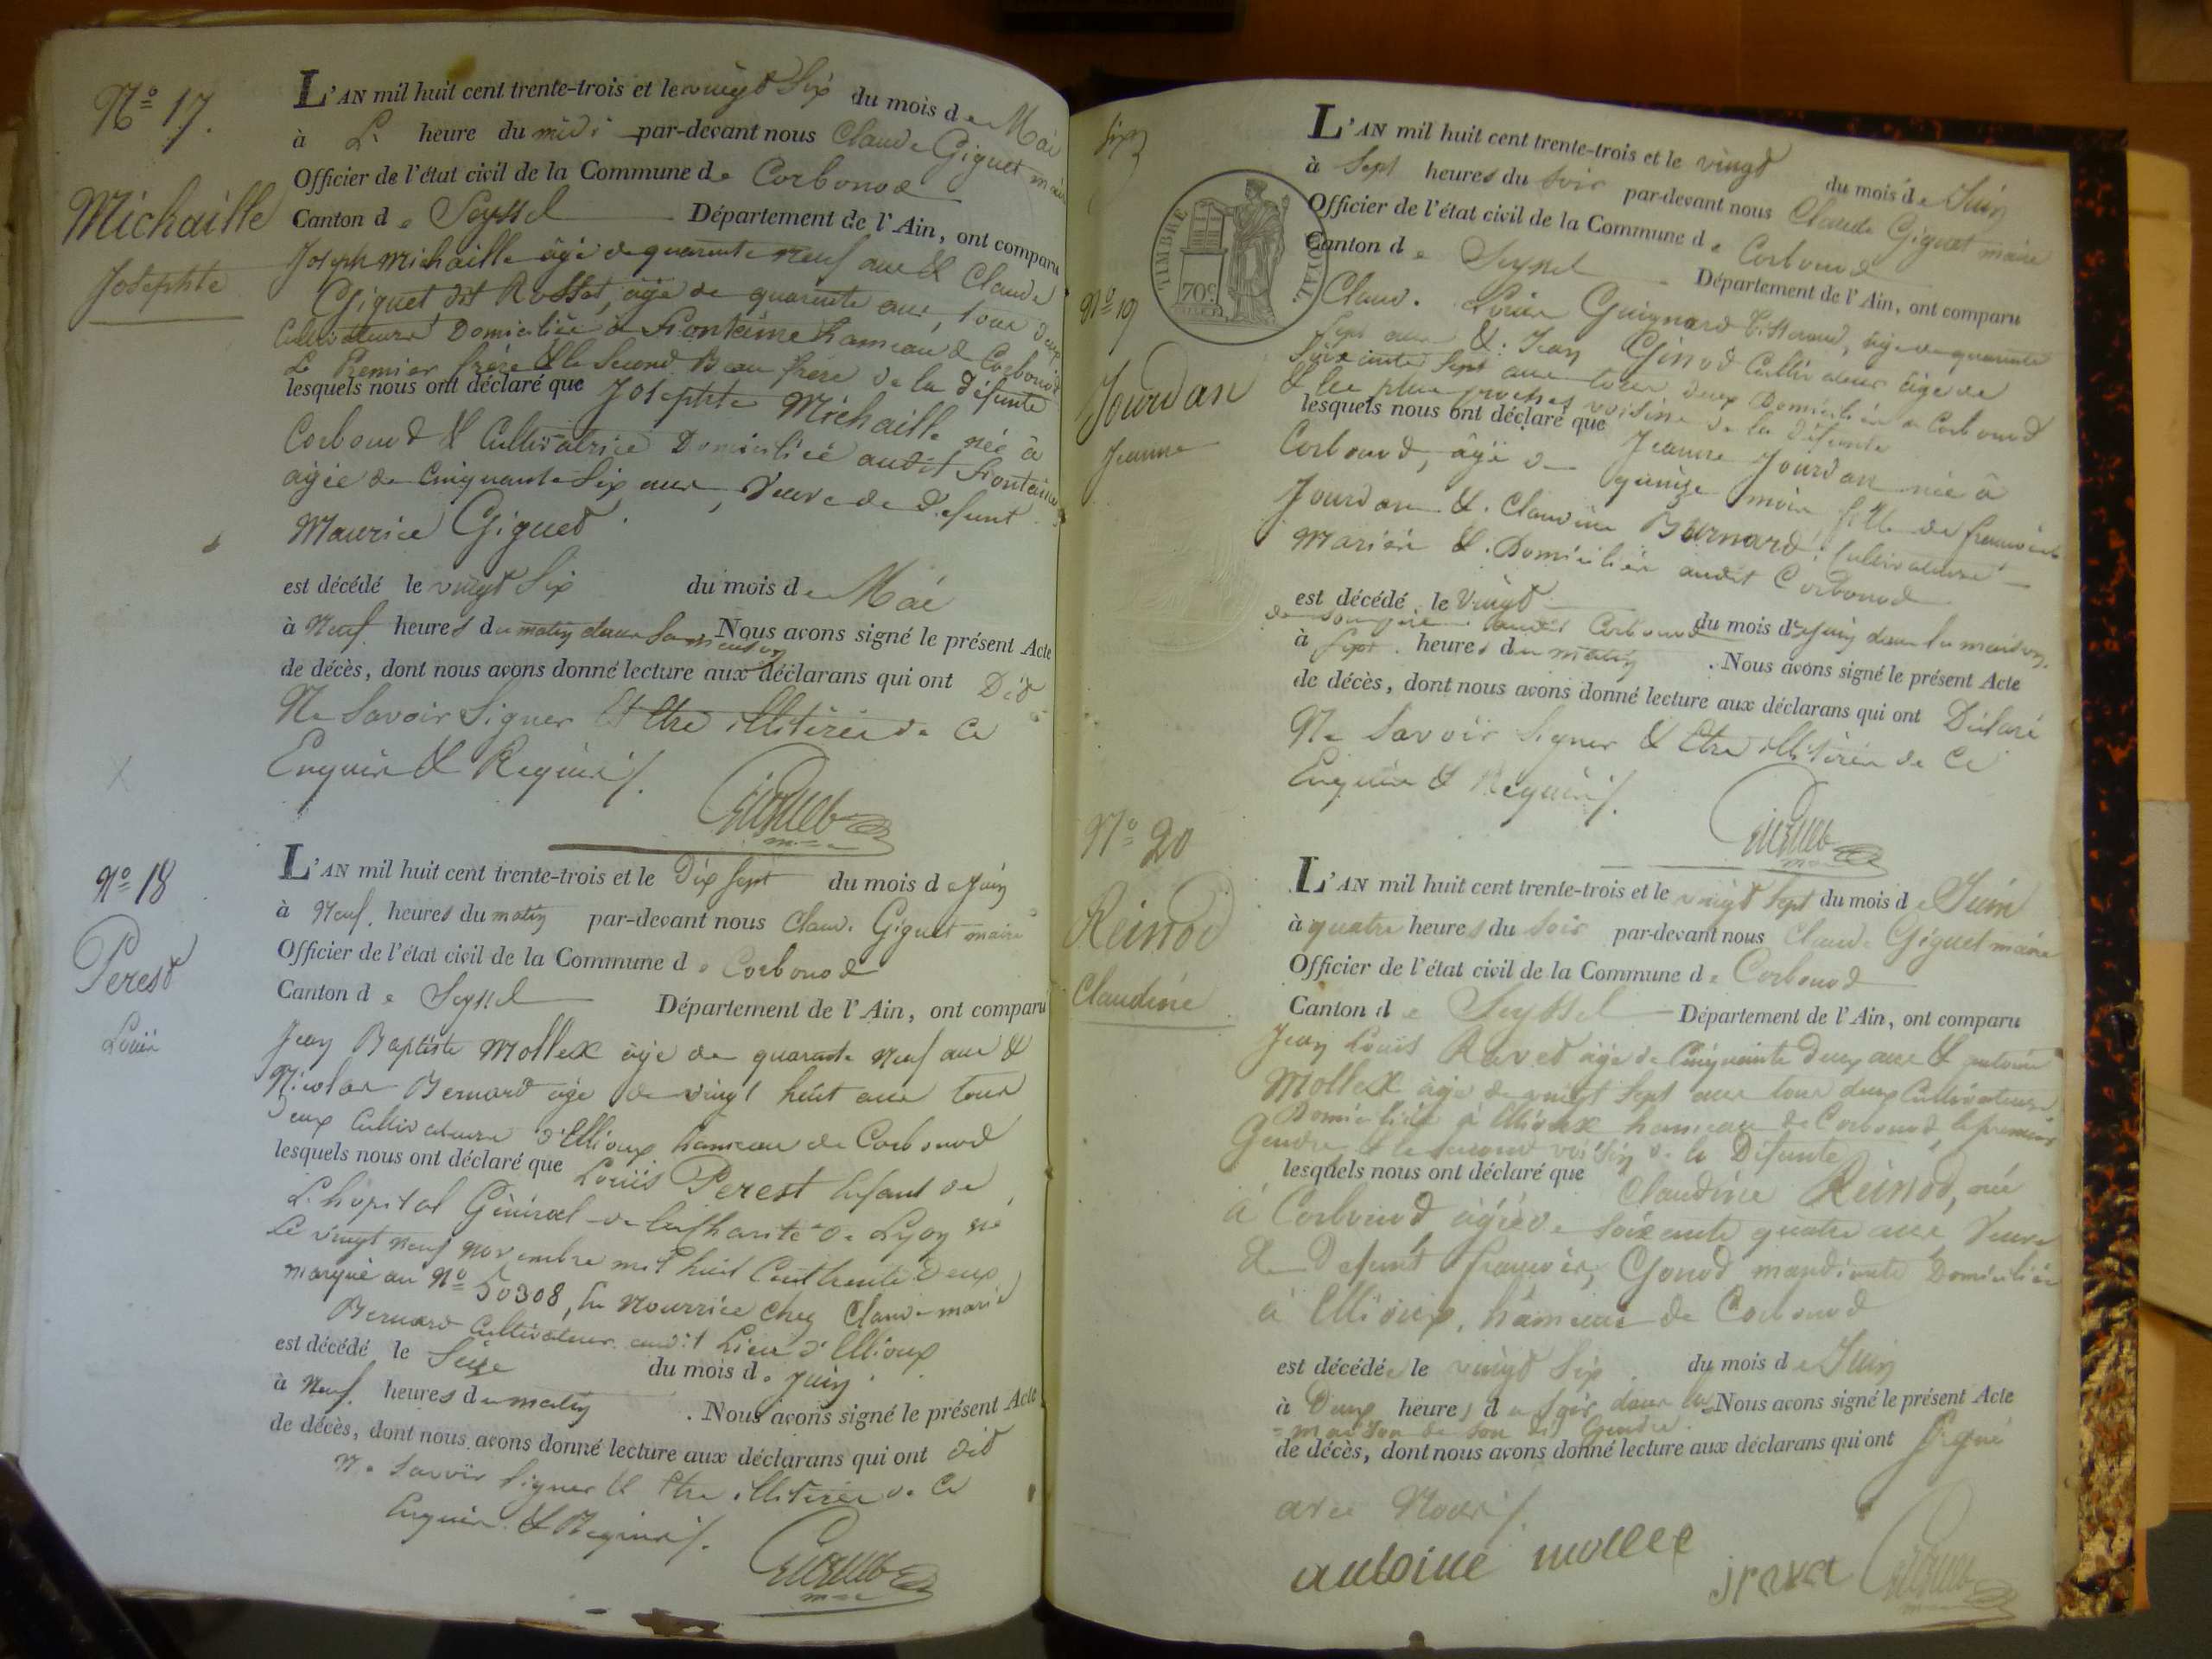 N.o 17.
Michaille
Josephte
L'AN mil huit cent trente-trois et le vingt Six du mois de Mai
à L heure du midi par-devant nous Claude Giguet maire
Officier de l'état civil de la Commune de Corbonod
Canton de Seyssel Département de l'Ain, ont comparu
Joseph Michaille âgé de quarante neuf ans & Claude
Giguet dit Rosset, âgé de quarante ans, tous deux
Cultivateurs Domiciliés à Fontaine hameau de Corbonod
Le Premier frère & le Second Beau frère de la défunte
lesquels nous ont déclaré que Josephte Michaille née à
Corbonod & Cultivatrice Domiciliée audit Fontaine
âgée de Cinquante Six ans, Veuve de Defunt
Maurice Giguet.
est décédé le vingt Six du mois de Mai
à Neuf heures du matin dans Sa maison Nous avons signé le présent Acte
de décès, dont nous avons donné lecture aux déclarans qui ont Dit
Ne Savoir Signer Et Etre illitérés de Ce
Enquis & Requis /.
Giguet
N.o 18
Perest
Louis
L'AN mil huit cent trente-trois et le Dix Sept du mois de Juin
à Neuf heures du matin par-devant nous Claude Giguet maire
Officier de l'état civil de la Commune de Corbonod
Canton de Seyssel Département de l'Ain, ont comparu
Jean Baptiste Mollex âgé de quarante Neuf ans &
Nicolas Bernard âgé de vingt huit ans tous
Deux Cultivateurs d'Ellioux hameau de Corbonod
lesquels nous ont déclaré que Louis Perest Enfant de
L'hopital Général de la Charité de Lyon né
Le vingt neuf novembre mil huit Cent trente Deux
marqué au N.o 50308, En Nourrice Chez Claude marie
Bernard Cultivateur audit Lieu d'Ellioux
est décédé le Seize du mois de juin.
à Neuf heures du matin . Nous avons signé le présent Acte
de décès, dont nous avons donné lecture aux déclarans qui ont dit
Ne Savoir Signer & Etre illitérés de Ce
Enquis & Requis /.
Giguet
Six
TIMBRE ROYAL
70c
N.o 19
Jourdan
Jeanne
L'AN mil huit cent trente-trois et le vingt du mois de Juin
à Sept heures du Soir par-devant nous Claude Giguet maire
Officier de l'état civil de la Commune de Corbonod
Canton de Seyssel Département de l'Ain, ont comparu
Claude Louis Guignard Tisserand, âgé de quarante
Sept ans & Jean Ginod Cultivateur âgé de
Soixante Sept ans tous deux Domiciliés à Corbonod
& les plus proches voisins de la Défunte
lesquels nous ont déclaré que Jeanne Jourdan née à
Corbonod, âgé de quinze mois fille de François
Jourdan & Claudine Bernard Cultivateurs
Mariés & Domiciliés audit Corbonod
est décédé le Vingt du mois de Juin dans la maison
de Son père audit Corbonod
à Sept heures du matin . Nous avons signé le présent Acte
de décès, dont nous avons donné lecture aux déclarans qui ont Déclaré
Ne Savoir Signer & Etre illitérés de Ce
Enquis & Requis /.
Giguet
N.o 20
Reinod
Claudine
L'AN mil huit cent trente-trois et le vingt Sept du mois de Juin
à quatre heures du Soir par-devant nous Claude Giguet maire
Officier de l'état civil de la Commune de Corbonod
Canton de Seyssel Département de l'Ain, ont comparu
Jean Louis Ravet âgé de Cinquante Deux ans & antoine
Mollex âgé de vingt Sept ans tous deux Cultivateurs
Domiciliés à Ellioux hameau de Corbonod, le premier
Gendre & le second voisin de la Défunte
lesquels nous ont déclaré que Claudine Reinod, née
à Corbonod âgée de Soixante quatre ans Veuve
de Defunt François Gonod mandiante Domiciliée
à Ellioux, hameau de Corbonod
est décédée le vingt Six du mois de Juin
à Deux heures du Soir dans la Nous avons signé le présent Acte
maison de son dit Gendre.
de décès, dont nous avons donné lecture aux déclarans qui ont Signé
avec Nous /.
antoine mollee
Giguet